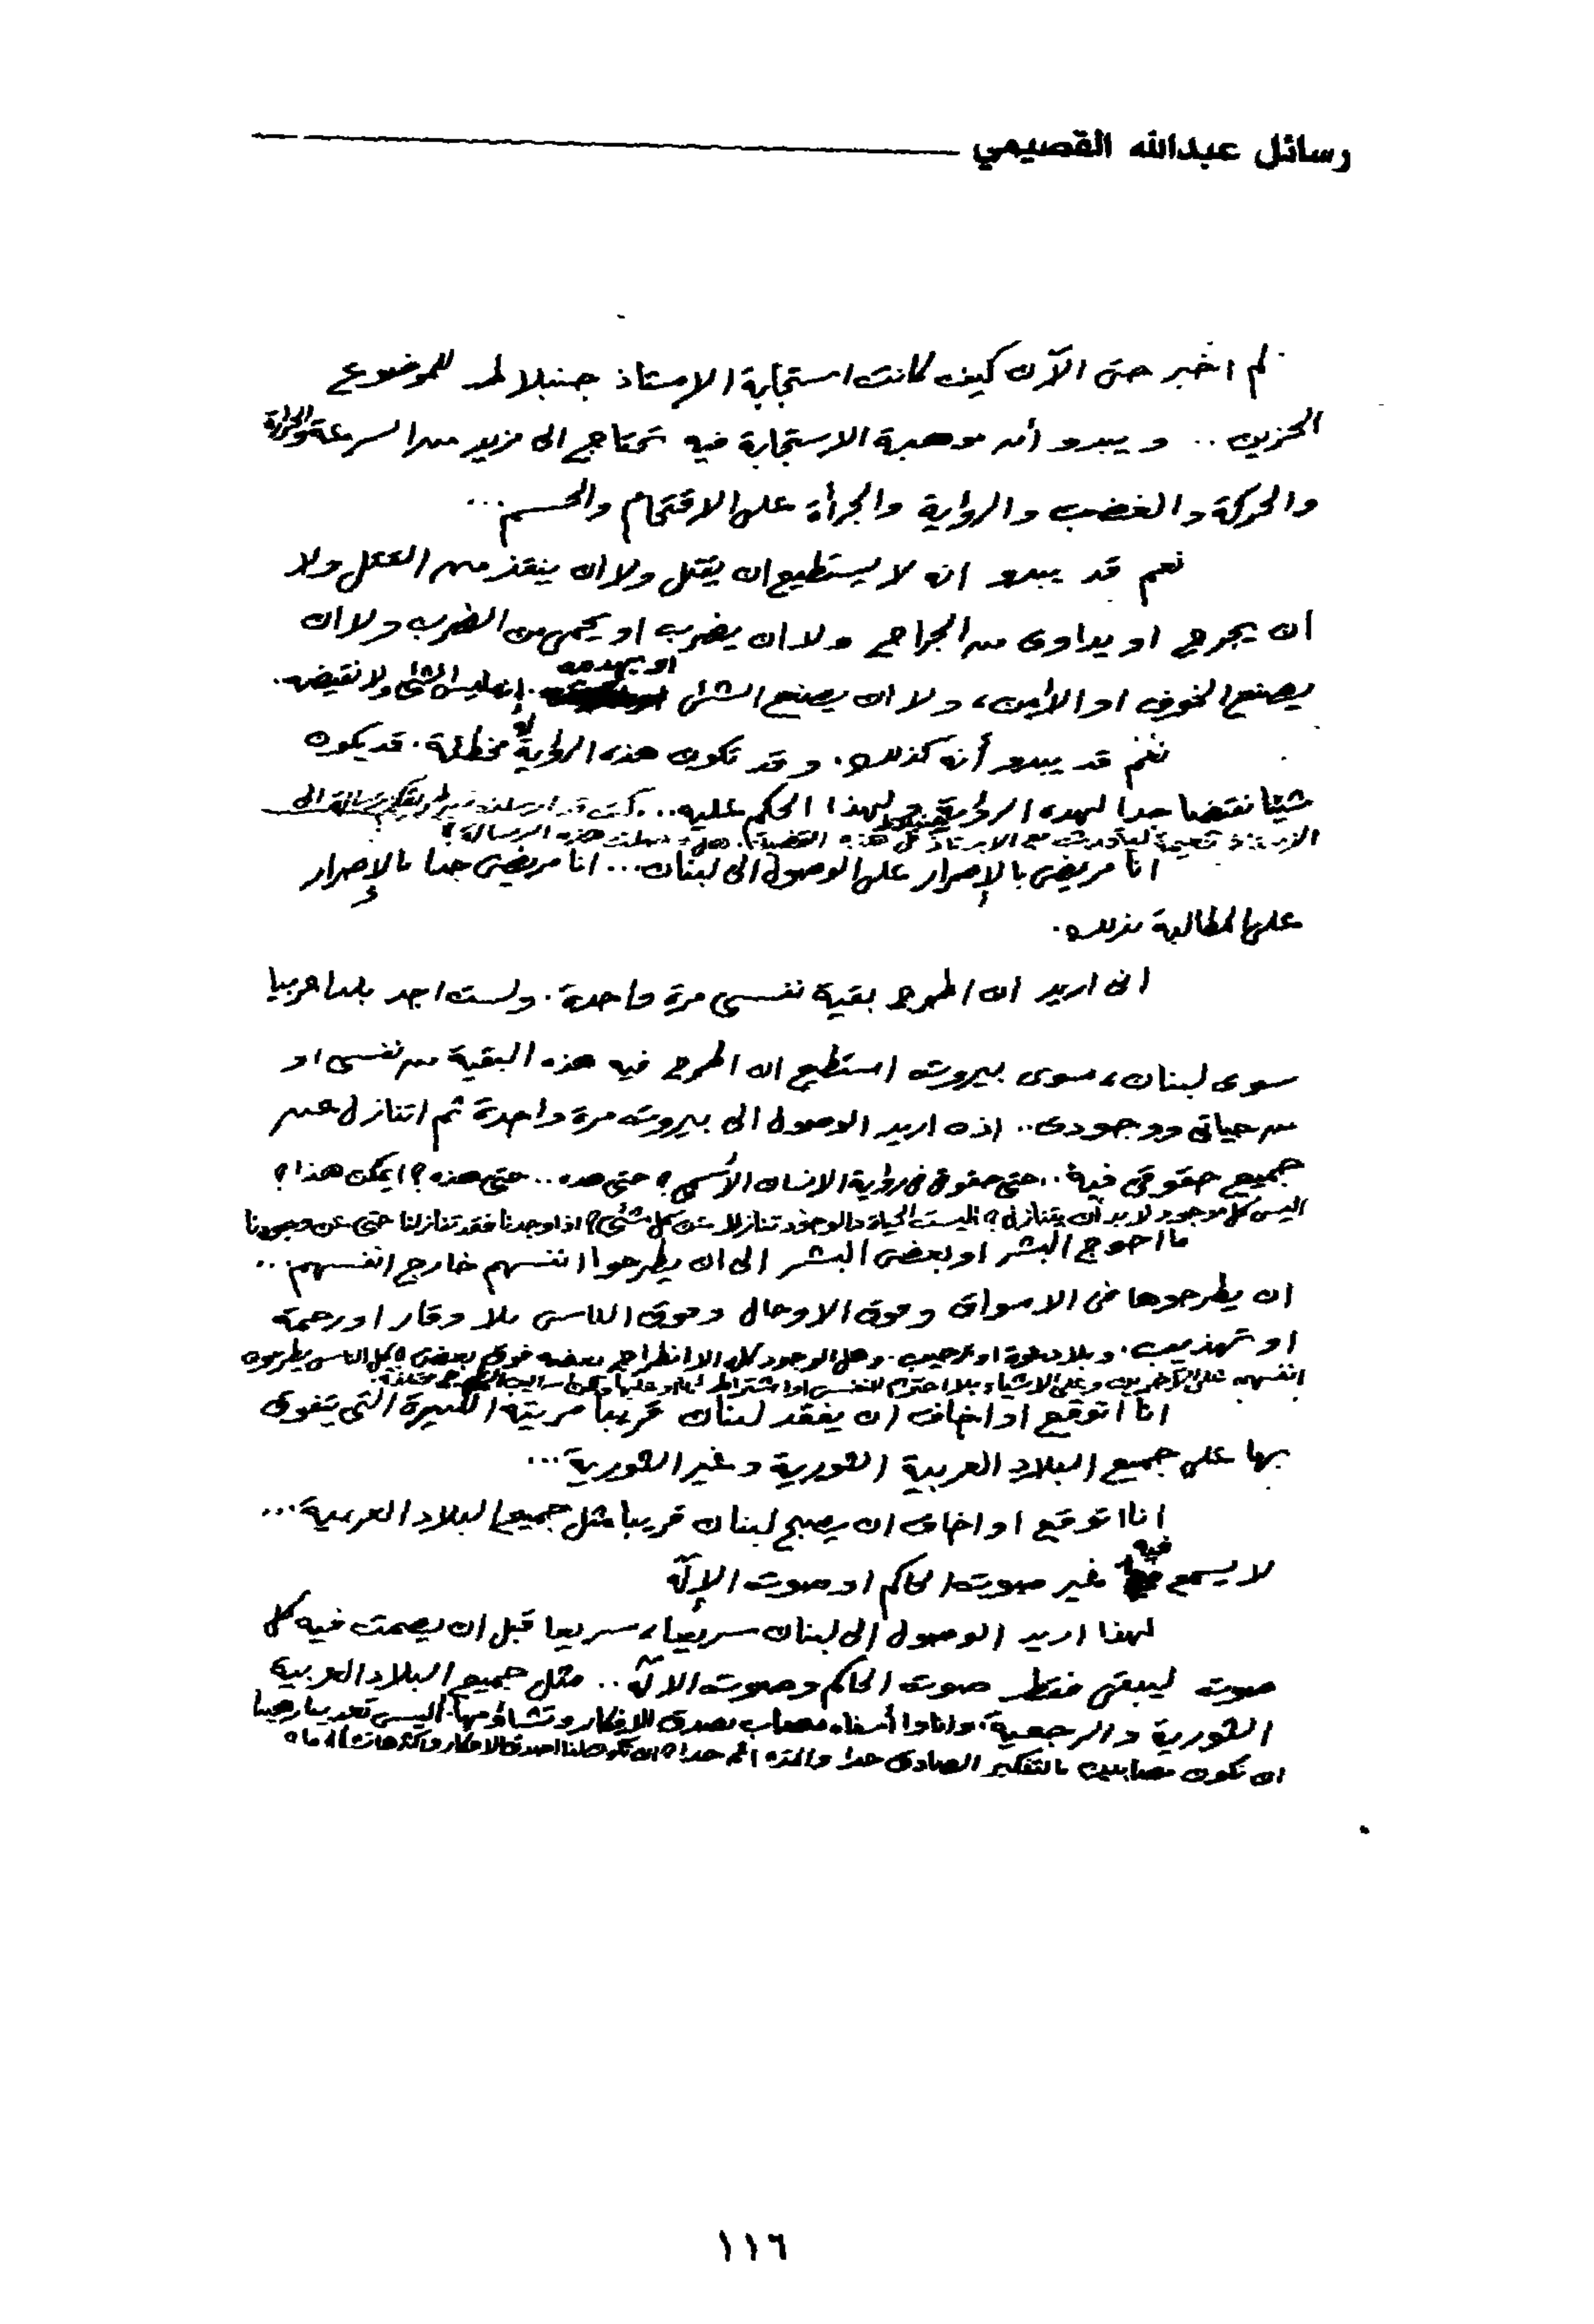 رسائل عبدالله القصيمي
لم اخبر حتى الآن كيف كانت استجابة الاستاذ جنبلاط للموضوع
الحزين .. و يبدو أن موهبة الاستجابة فيه تحتاج الى مزيد من السرعة والحرارة
والحركة والغضب والرواية والجرأة على الاقتحام والحسم ...
نعم قد يبدو انه لا يستطيع ان يقتل ولا ان ينقذ من القتل ولا
ان يجرح او يداوى من الجراح ولا ان يضرب او يحمى من الضرب ولا ان
يصنع الخوف او الأمن، ولا ان يصنع الشئ او يهدمه. إنه ليس الشئ ولا نقيضه.
نعم قد يبدو أنه كذلك. وقد تكون هذه الرواية له مخطئة. قد يكون
شيئا نقيضا جدا لهذه الرواية لهذا الحكم عليه.. كنت قد ارسلت رسالة الى
الاستاذ مع الاستاذ هذه القضية. هل وصلت هذه الرسالة؟
انا مريض بالإصرار على الوصول الى لبنان... انا مريض جدا بالإصرار
على المطالبة بذلك.
انى اريد ان اطرح بقية نفسى مرة واحدة. ولست اجد بلدا عربيا
سوى لبنان، سوى بيروت استطيع ان اطرح فيه هذه البقية من نفسى او
من حياتى ووجودى.. اذن اريد الوصول الى بيروت مرة واحدة ثم اتنازل عن
جميع حقوقى فيه.. حتى حقوقى فى رواية الانسان الأسمى؟ حتى هذه.. حتى هذه؟ ايمكن هذا؟
اليس كل موجود لا بد أن يتنازل؟ اليست الحياة والوجود تنازلا عن كل شئ؟ اذا وجدنا فقد تنازلنا حتى عن وجودنا
ما احوج البشر او بعض البشر الى ان يطرحوا انفسهم خارج انفسهم..
ان يطرحوها فى الاسواق وفوق الاوحال وفوق الناس بلا وقار او رحمة
او تهذيب. وبلا دعوة او ترحيب. وهل الوجود كله الا انطراح بعضه فوق بعض؟ كل الناس يطرحون
انفسهم على الآخرين وعلى الاشياء بلا احترام للنفس او اشتراط لها او عليها ولكن اساليب الطرح مختلفة.
انا اتوقع او اخاف ان يفقد لبنان قريبا مزيته الكبيرة التى يتفوق
بها على جميع البلاد العربية الثورية وغير الثورية...
انا اتوقع او اخاف ان يصبح لبنان قريبا مثل جميع البلاد العربية...
لا يسمع فيه غير صوت الحاكم او صوت الإله
لهذا اريد الوصول إلى لبنان سريعا، سريعا قبل ان يصمت فيه كل
صوت ليبقى فقط صوت الحاكم وصوت الاله.. مثل جميع البلاد العربية
الثورية والرجعية. وانا وا أسفاه مصاب بصدق الافكار وتشاؤمها. أليس تعذيبا رهيبا
ان نكون مصابين بالتفكير الصادق جدا
١١٦